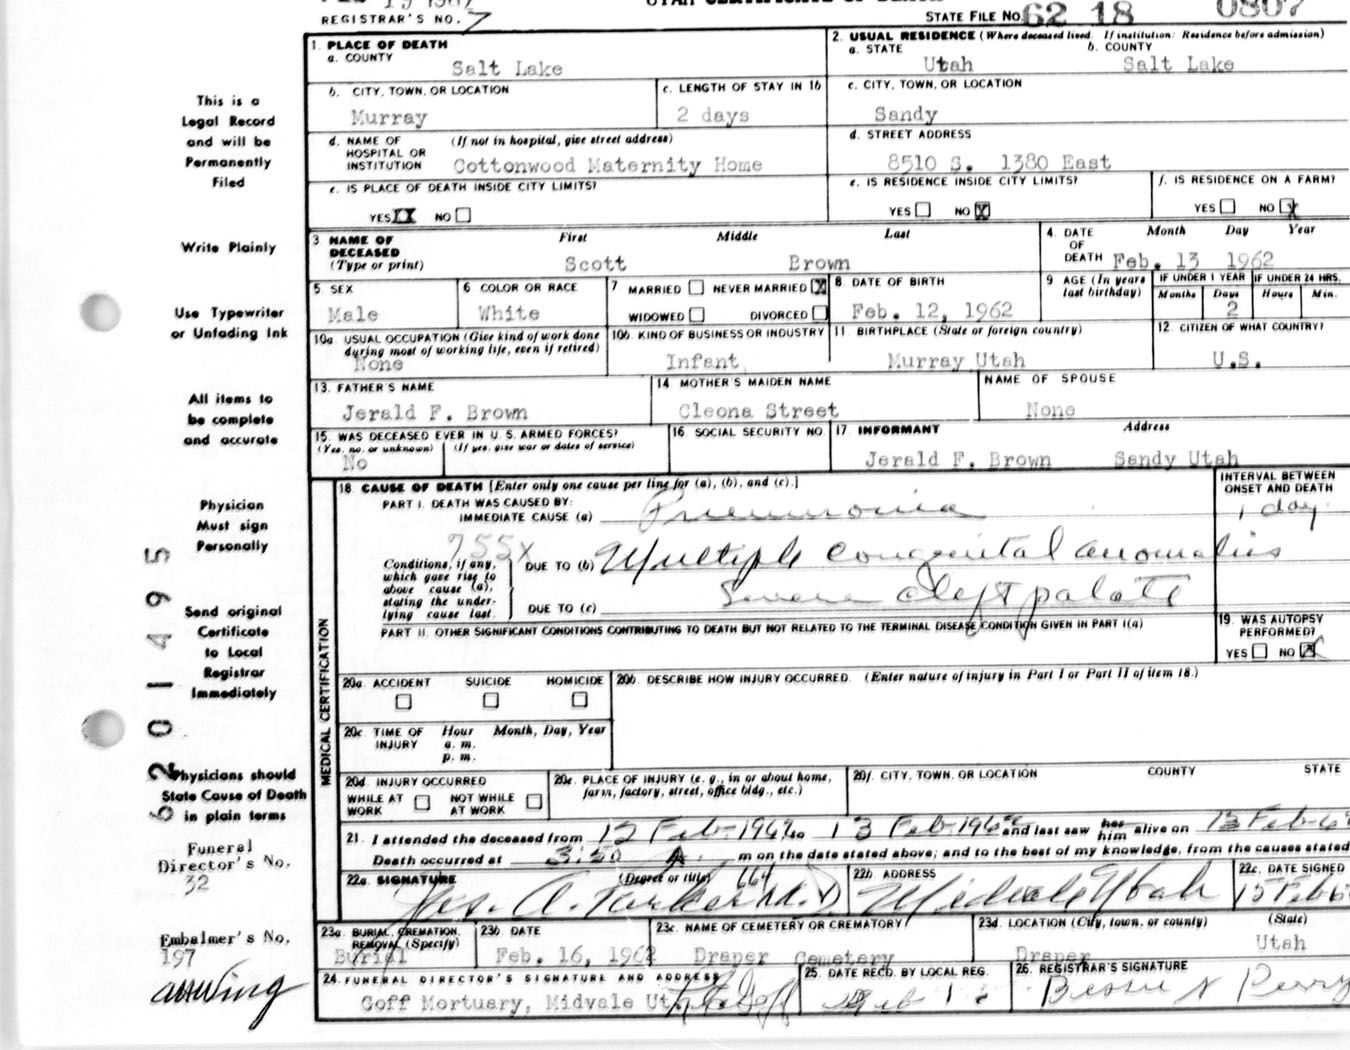 REGISTRAR'S NO. 7
STATE FILE NO. 62 18 0807
1. PLACE OF DEATH
a. COUNTY
Salt Lake
2. USUAL RESIDENCE (Where deceased lived. If institution: Residence before admission)
a. STATE b. COUNTY
Utah Salt Lake
b. CITY, TOWN, OR LOCATION
Murray
c. LENGTH OF STAY IN 1b
2 days
c. CITY, TOWN, OR LOCATION
Sandy
d. NAME OF HOSPITAL OR INSTITUTION (If not in hospital, give street address)
Cottonwood Maternity Home
d. STREET ADDRESS
8510 S. 1380 East
e. IS PLACE OF DEATH INSIDE CITY LIMITS?
YES XX NO
e. IS RESIDENCE INSIDE CITY LIMITS?
YES NO X
f. IS RESIDENCE ON A FARM?
YES NO X
3 NAME OF DECEASED (Type or print)
First Middle Last
Scott Brown
4. DATE OF DEATH
Month Day Year
Feb. 13 1962
5. SEX
Male
6 COLOR OR RACE
White
7 MARRIED NEVER MARRIED X
WIDOWED DIVORCED
8 DATE OF BIRTH
Feb. 12, 1962
9 AGE (In years last birthday)
IF UNDER 1 YEAR IF UNDER 24 HRS.
Months Days Hours Min.
2
10a. USUAL OCCUPATION (Give kind of work done during most of working life, even if retired)
None
10b. KIND OF BUSINESS OR INDUSTRY
Infant
11. BIRTHPLACE (State or foreign country)
Murray Utah
12. CITIZEN OF WHAT COUNTRY?
U.S.
13. FATHER'S NAME
Jerald F. Brown
14 MOTHER'S MAIDEN NAME
Cleona Street
NAME OF SPOUSE
None
15. WAS DECEASED EVER IN U. S. ARMED FORCES?
(Yes, no, or unknown) (If yes, give war or dates of service)
No
16 SOCIAL SECURITY NO.
17. INFORMANT Address
Jerald F. Brown Sandy Utah
MEDICAL CERTIFICATION
18. CAUSE OF DEATH [Enter only one cause per line for (a), (b), and (c).]
INTERVAL BETWEEN ONSET AND DEATH
PART I. DEATH WAS CAUSED BY:
IMMEDIATE CAUSE (a) Pneumonia 1 day
755X
Conditions, if any, which gave rise to above cause (a), stating the underlying cause last.
DUE TO (b) Multiple congenital anomalies
DUE TO (c) Severe cleft palate
PART II. OTHER SIGNIFICANT CONDITIONS CONTRIBUTING TO DEATH BUT NOT RELATED TO THE TERMINAL DISEASE CONDITION GIVEN IN PART I(a)
19. WAS AUTOPSY PERFORMED?
YES NO X
20a. ACCIDENT SUICIDE HOMICIDE
20b. DESCRIBE HOW INJURY OCCURRED. (Enter nature of injury in Part I or Part II of item 18.)
20c. TIME OF INJURY Hour Month, Day, Year
a. m.
p. m.
20d. INJURY OCCURRED
WHILE AT WORK NOT WHILE AT WORK
20e. PLACE OF INJURY (e. g., in or about home, farm, factory, street, office bldg., etc.)
20f. CITY, TOWN, OR LOCATION COUNTY STATE
21. I attended the deceased from 12 Feb-1962 to 13 Feb-1962 and last saw her him alive on 13 Feb-62
Death occurred at 3:50 A. m on the date stated above; and to the best of my knowledge, from the causes stated
22a. SIGNATURE (Degree or title) 664
Jas. A. Parker M.D.
22b. ADDRESS
Midvale Utah
22c. DATE SIGNED
15 Feb 6
23a. BURIAL, CREMATION, REMOVAL (Specify)
Burial
23b. DATE
Feb. 16, 1962
23c. NAME OF CEMETERY OR CREMATORY
Draper Cemetery
23d. LOCATION (City, town, or county) (State)
Draper Utah
24. FUNERAL DIRECTOR'S SIGNATURE AND ADDRESS
Goff Mortuary, Midvale Ut
25. DATE RECD. BY LOCAL REG.
26. REGISTRAR'S SIGNATURE
Bessie N Perry
This is a
Legal Record
and will be
Permanently
Filed
Write Plainly
Use Typewriter
or Unfading Ink
All items to
be complete
and accurate
Physician
Must sign
Personally
Send original
Certificate
to Local
Registrar
Immediately
Physicians should
State Cause of Death
in plain terms
Funeral
Director's No.
32
Embalmer's No.
197
62 01495